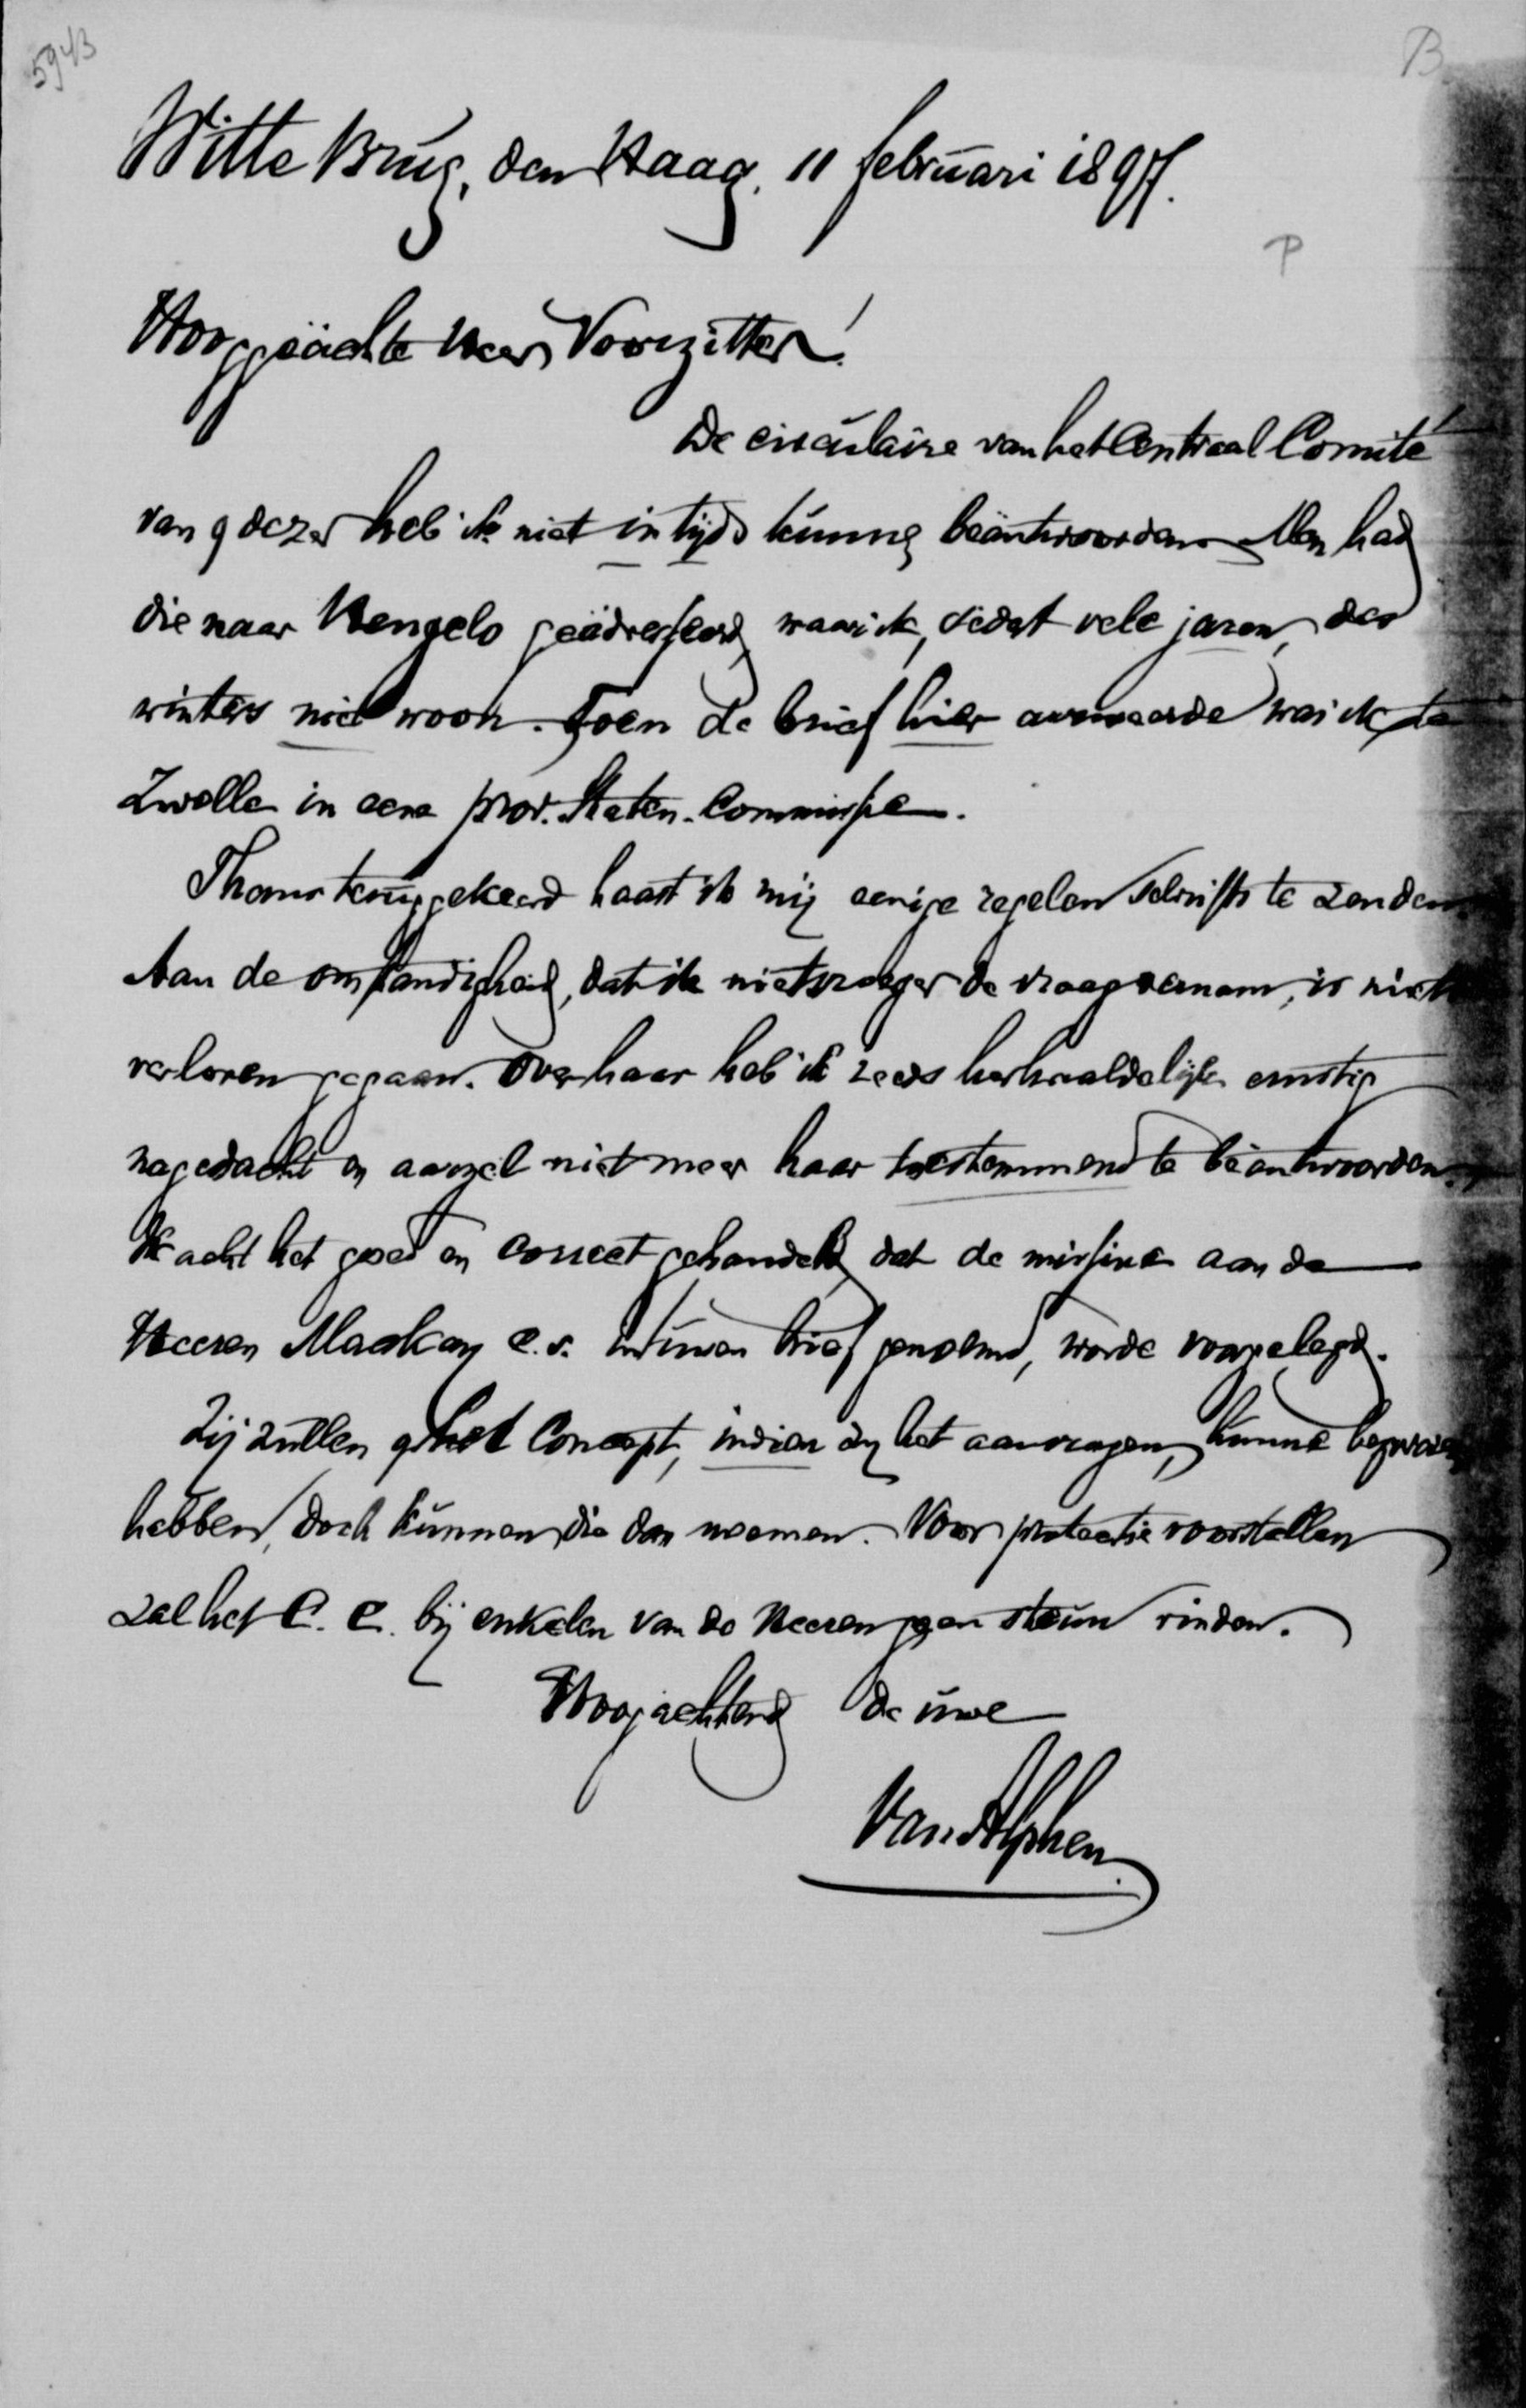 5943
B
Witte Brug, den Haag, 11 februari 1897.
P
Hooggeächte Heer Voorzitter!
De circulaire van het Centraal Comité
van 9 dezer heb ik niet in tijds kunnen beäntwoorden. Men had
die naar Hengelo geädresseerd, waar ik, sedert vele jaren, des
winters niet woon. Toen de brief hier aankwam was ik te
Zwolle in eene prov. Staten-Commissie.
Thans teruggekeerd haast ik mij eenige regelen schrifts te zenden.
Aan de omstandigheid, dat ik niet vroeger de vraag vernam, is niets
verloren gegaan. Over haar heb ik reeds herhaaldelijk ernstig
nagedacht en aarzel niet meer haar toestemmend te beäntwoorden.
Ik acht het goed en correct gehandeld, dat de missive aan de
Heeren Mackay c.s. in uwen brief genoemd, worde voorgelegd.
Zij zullen op het Concept, indien zij het aanvragen, hunne bezwaren
hebben, doch kunnen die dan noemen. Voor protectie voorstellen
zal het C. C. bij enkelen van de Heeren geen steun vinden.
Hoogachtend de uwe
Van Alphen